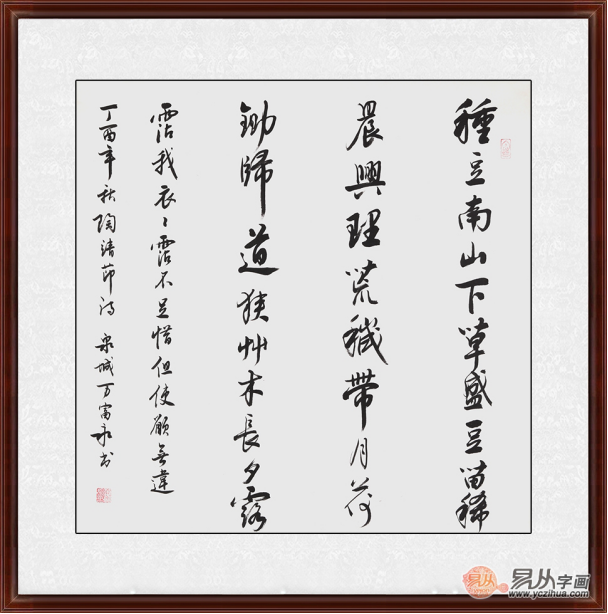 種豆南山下草盛豆苗稀
晨興理荒穢帶月荷
鋤歸道狹艸木長夕露
霑我衣〻霑不足惜但使願無違
丁酉年秋陶靖节诗 泉城万富永书
易从字画
www.yczihua.com